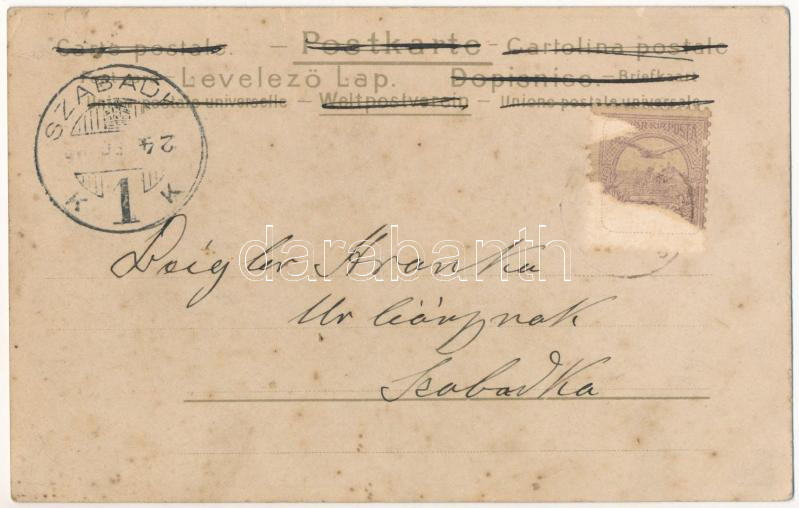 Carte postale — Postkarte — Cartolina postale
Levelező Lap. Dopisnice. — Briefkaart
Union postale universelle — Weltpostverein — Unione postale universale
SZABAD
24
1
K K
KIR. POSTA
darabanth
Aranka
Szabadka